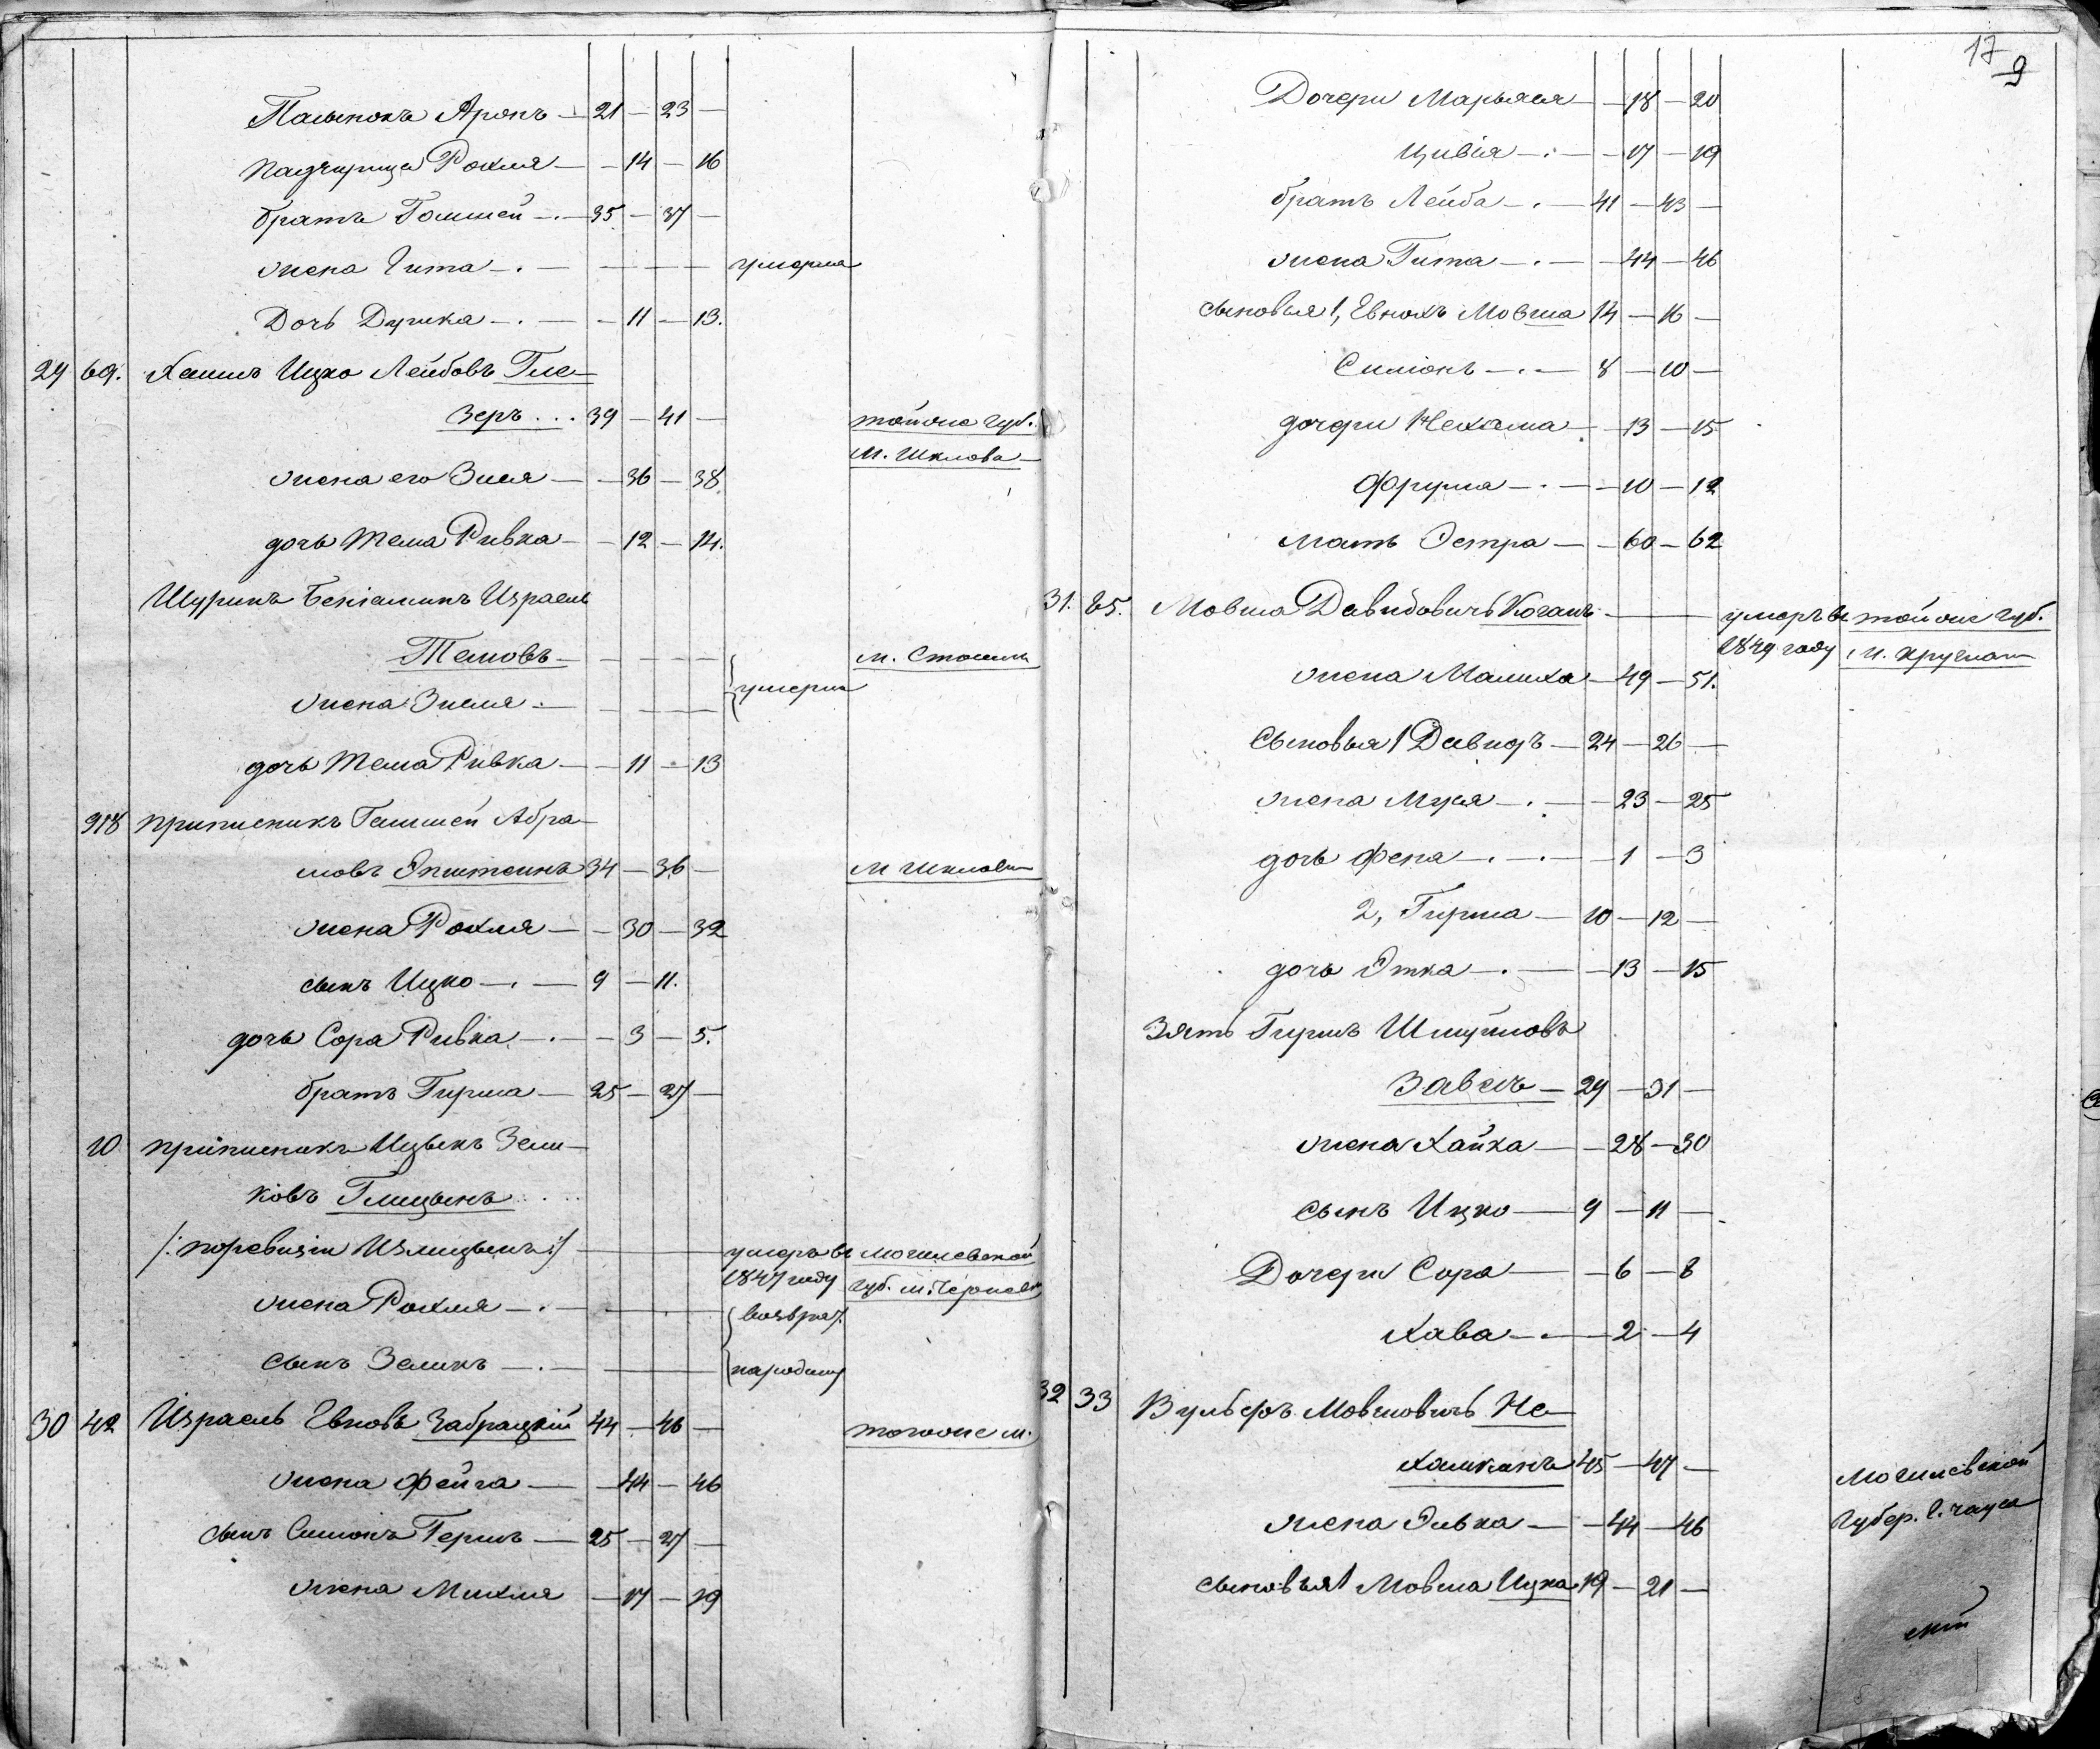 Пасынокъ Аронъ — 21 — 23 —
падчерица Рохля — — 14 — 16
братъ Гошшей — 35 — 37 —
жена Гита — — — — — умерла
Дочь Душка — — 11 — 13.
29 69. Хаимъ Ицко Лейбовъ Гле-
зеръ . . . 39 — 41 — тойже губ.
м. Шклова
жена его Зися — — 36 — 38.
дочь Тема Ривка — — 12 — 14.
Шуринъ Беніаминъ Израель
Темовъ — — — —
жена Зисля — — — — — умерли
дочь Тема Ривка — — 11 — 13
918 приписникъ Гошшей Абра-
мовъ Эпштеинъ 34 — 36 — м Шклова
жена Рохля — — 30 — 32
сынъ Ицко — 9 — 11.
дочь Сора Ривка — — 3 — 5.
братъ Гирша — 25 — 27 —
10 приписникъ Ицыкъ Зели-
ковъ
умеръ въ Могилевской
1847 году губ. м.
жена Рохля —
сынъ Зеликъ — на родину
30 42 Израель Евновъ Забрацкій 44 — 46 — тогоже м.
жена Фейга — — 44 — 46
сынъ Симонъ Гершъ — 25 — 27 —
жена Михля — 17 — 19
17
9
Дочери Марьяся — — 18 — 20
Цивія — — 17 — 19
братъ Лейба — 41 — 43 —
жена Гита — — 44 — 46
сыновья 1, Евнохъ Мовша 14 — 16 —
Симонъ — 8 — 10 —
дочери Нехама — 13 — 15
Фрума — — 10 — 12
мать Эстра — — 60 — 62
31. 85. Мовша Давидовичъ Коганъ — умеръ въ тойже губ.
1849 году м. Круглаго
жена Малиха — 49 — 51.
Сыновья 1 Давидъ — 24 — 26 —
жена Муся — — 23 — 25
дочь Фена — — 1 — 3
2, Гирша — 10 — 12 —
дочь Этка — — 13 — 15
Зять Гиршъ Шмуйловъ
29 — 31 —
жена Хайка — — 28 — 30
сынъ Ицко — 9 — 11 —
Дочери Сора — — 6 — 8
Хава — — 2 — 4
32 33 Вульфъ Мовшовичъ Не-
45 — 47 — Могилевской
губер. г. Чауса
жена Ривка — — 44 — 46
сыновья 1 Мовша Ицка 19 — 21 —